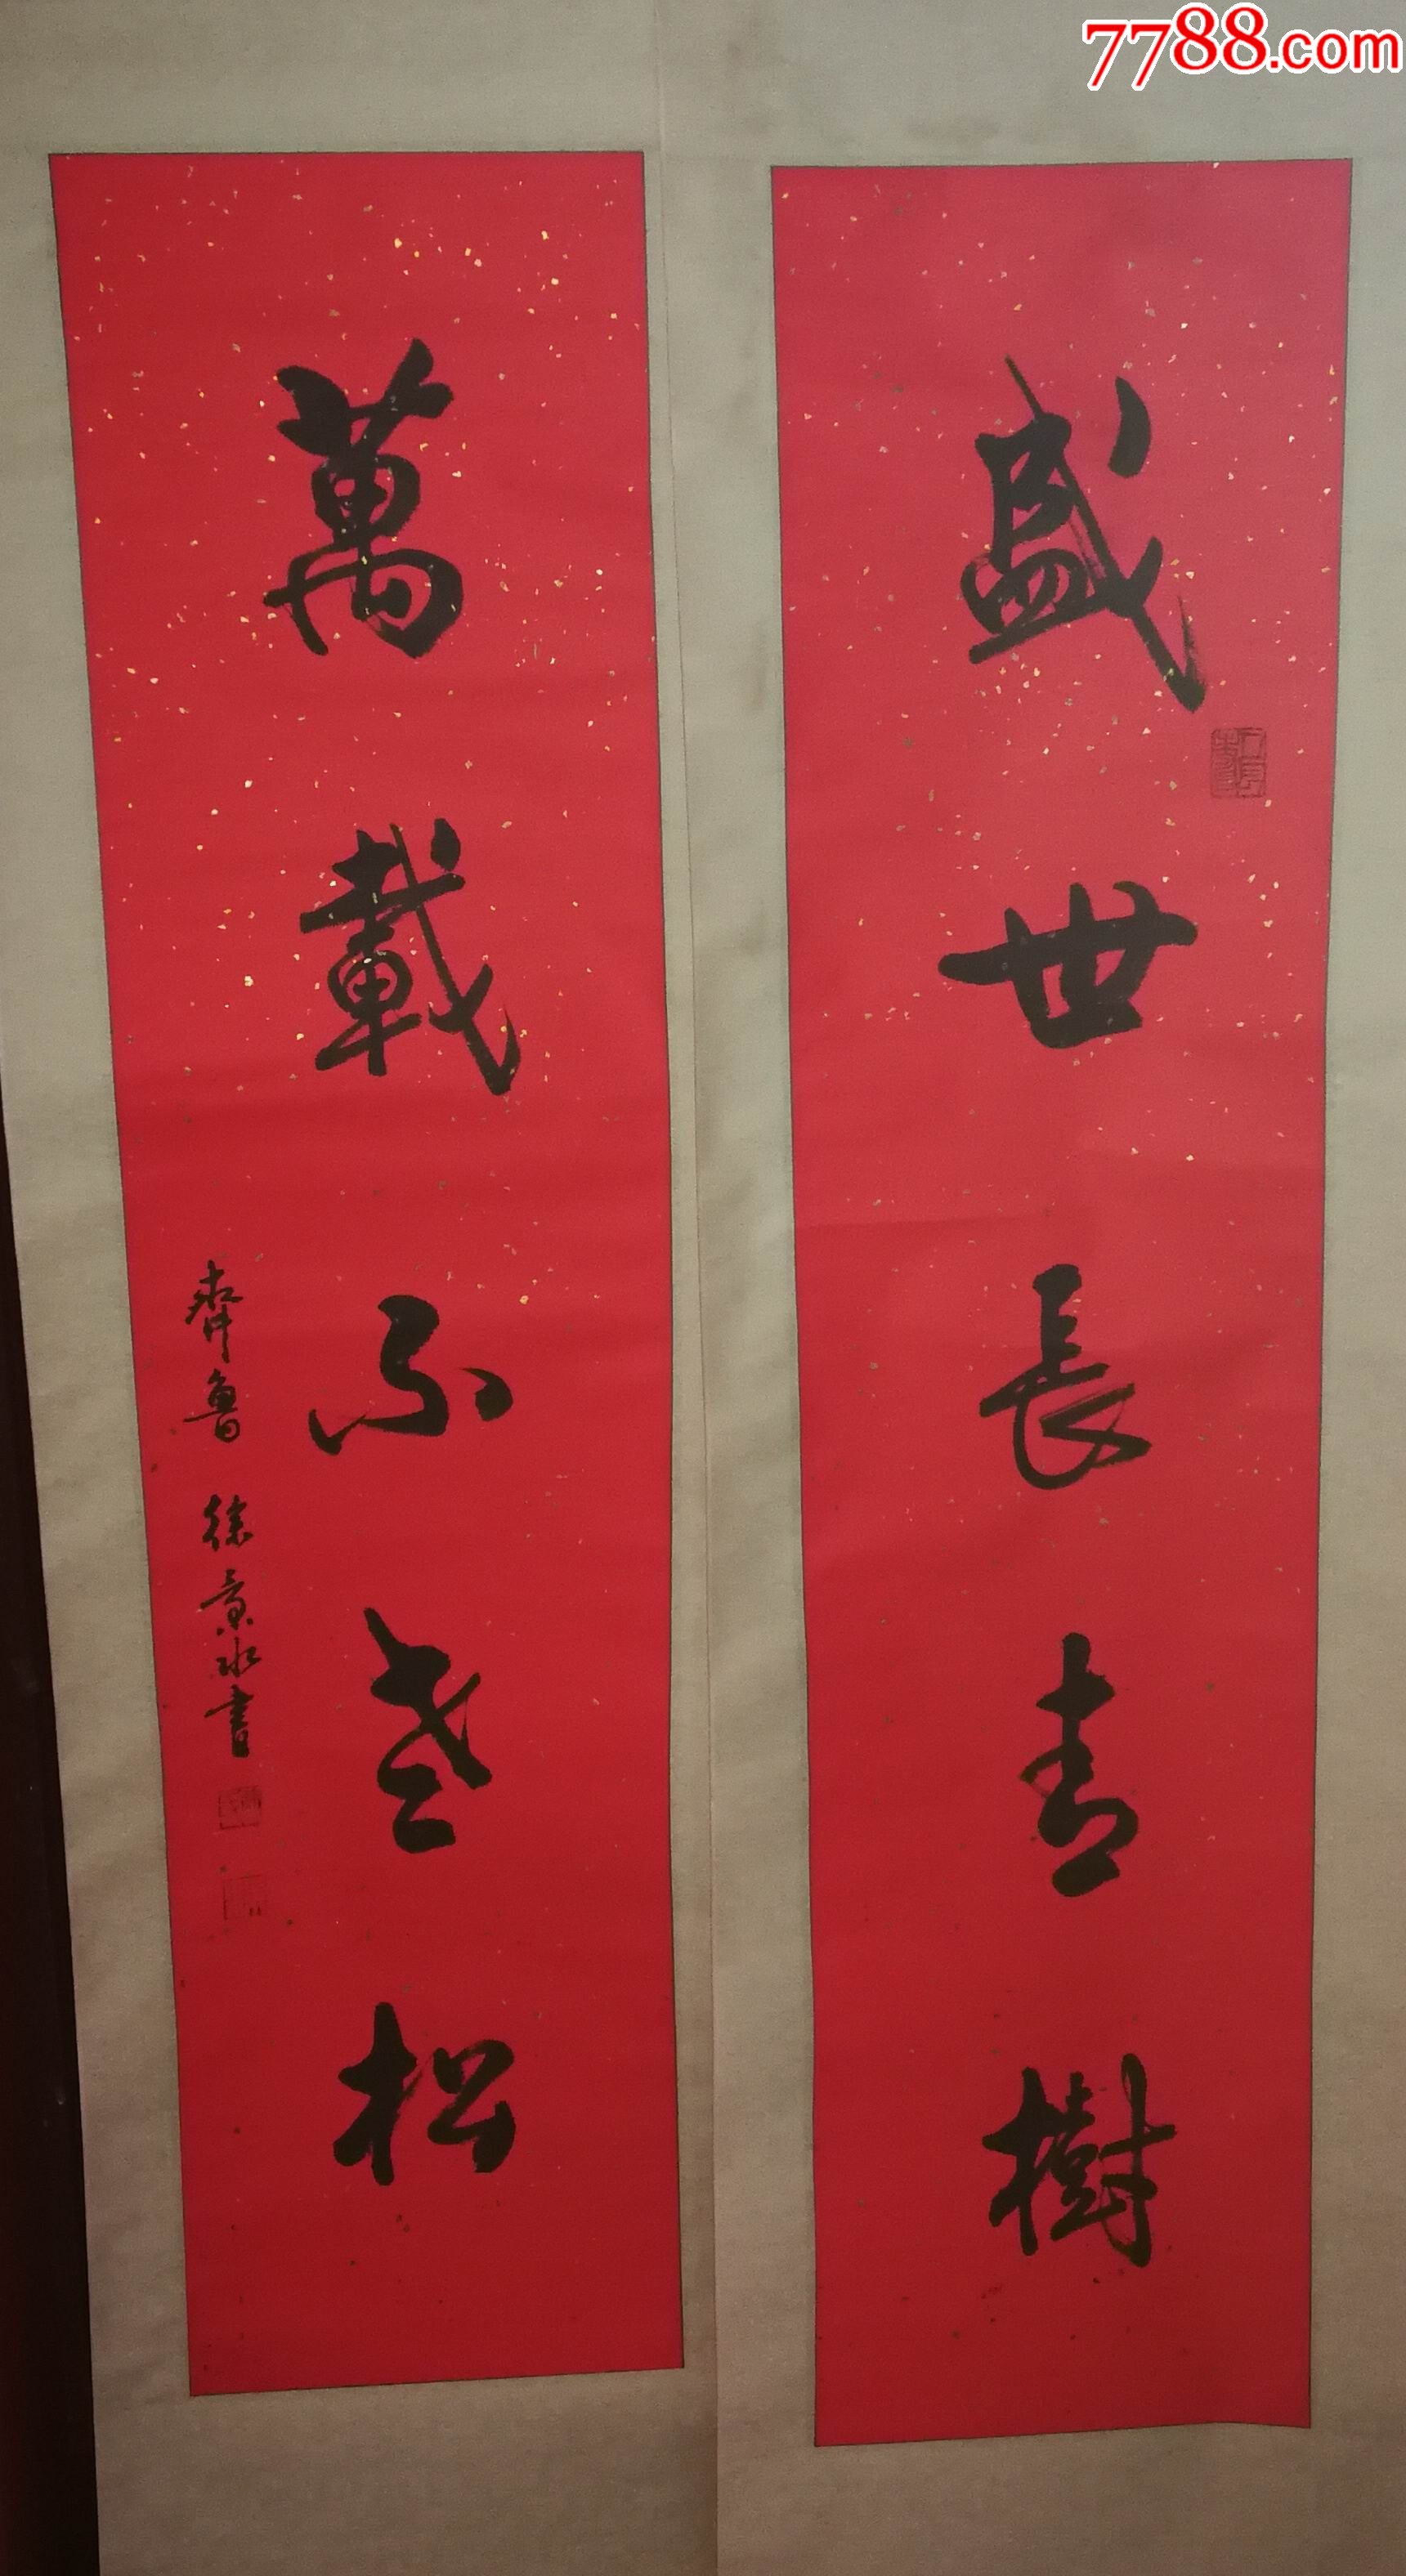 盛世長青樹
萬載不老松
齊魯 徐景水書
7788.com